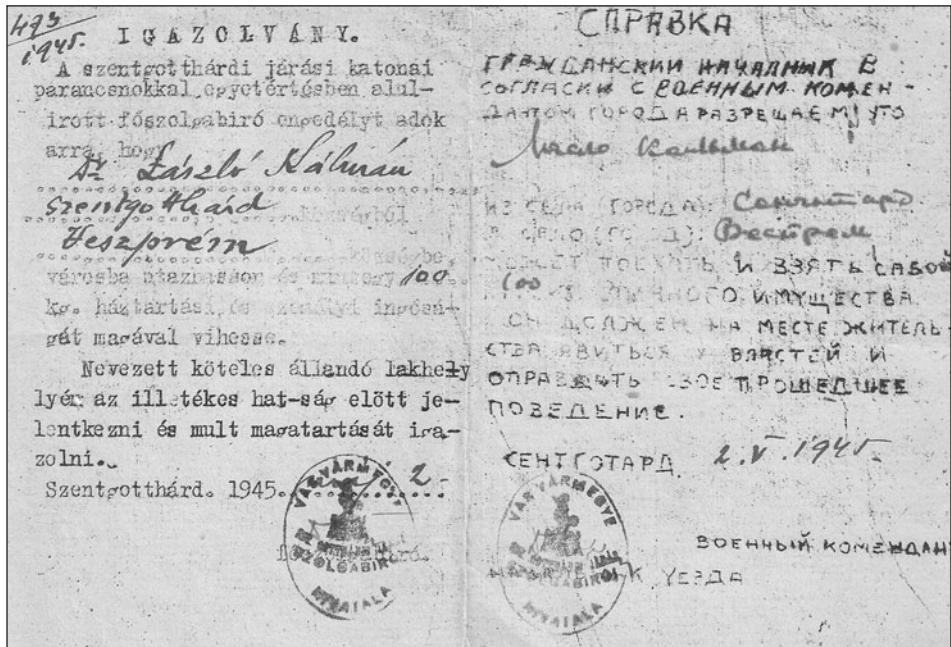 493
1945.
IGAZOLVÁNY.
A szentgotthárdi járási katonai
parancsnokkal egyetértésben alul-
irott főszolgabiró engedélyt adok
arra, hogy
Dr László Kálmán
Szentgotthárd községből
Veszprém községbe,
városba utazhasson és mintegy 100
kg. háztartási és személyi ingósá-
gát magával vihesse.
Nevezett köteles állandó lakhely
lyén az illetékes hat-ság előtt je-
lentkezni és mult magatartását iga-
zolni.
Szentgotthárd. 1945. máj 2.
VASVÁRMEGYE
SZOLGABIRÓI
HIVATALA
СПРАВКА
ГРАЖДАНСКИИ НАЧАЛНИК В
СОГЛАСКИ С ВОЕННЫМ КОМЕН-
ДАНТОМ ГОРОДА РАЗРЕЩАЕМ ЧТО
Ласло Кальман
ИЗ СЕЛА (ГОРОДА): Сентготард
В СЕЛО (ГОРОД): Веспрем
МОЖЕТ ПОЕХАТЬ И ВЗЯТЬ САБОЙ
100 ЛИЧНОГО ИМУЩЕСТВА
ОН ДОЛЖЕН НА МЕСТЕ ЖИТЕЛЬ
СТВА ЯВИТЬСЯ У ВЛАСТЕЙ И
ОПРАВДАТЬ СВОЕ ПРОШЕДШЕЕ
ПОВЕДЕНИЕ.
СЕНТГОТАРД 2.V.1945.
ВОЕННЫЙ КОМЕНДАНТ
УЕЗДА
VASVÁRMEGYE
SZOLGABIRÓI
HIVATALA